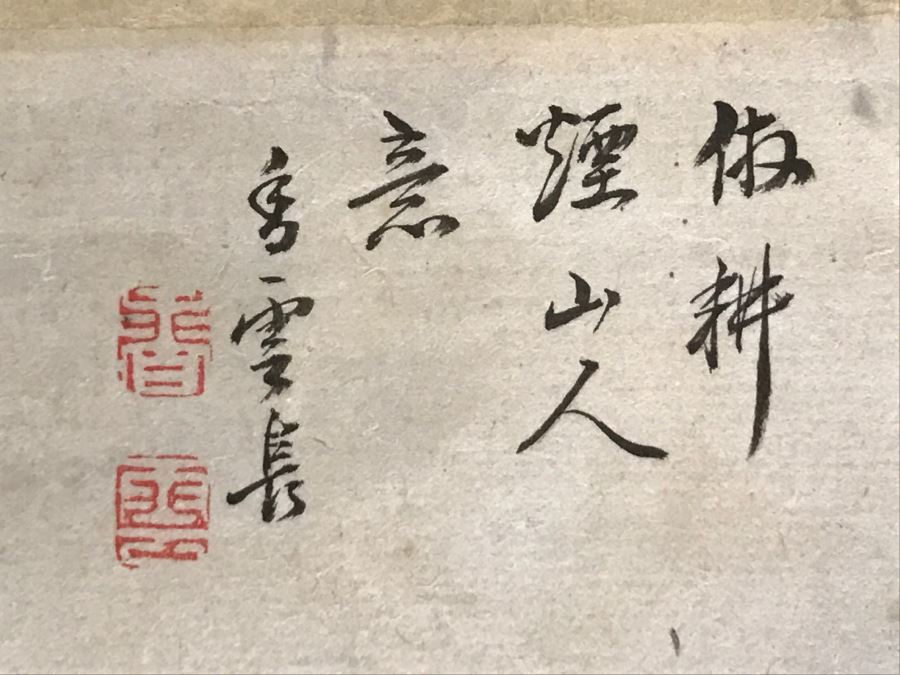 倣耕
煙山人
意
香雲長